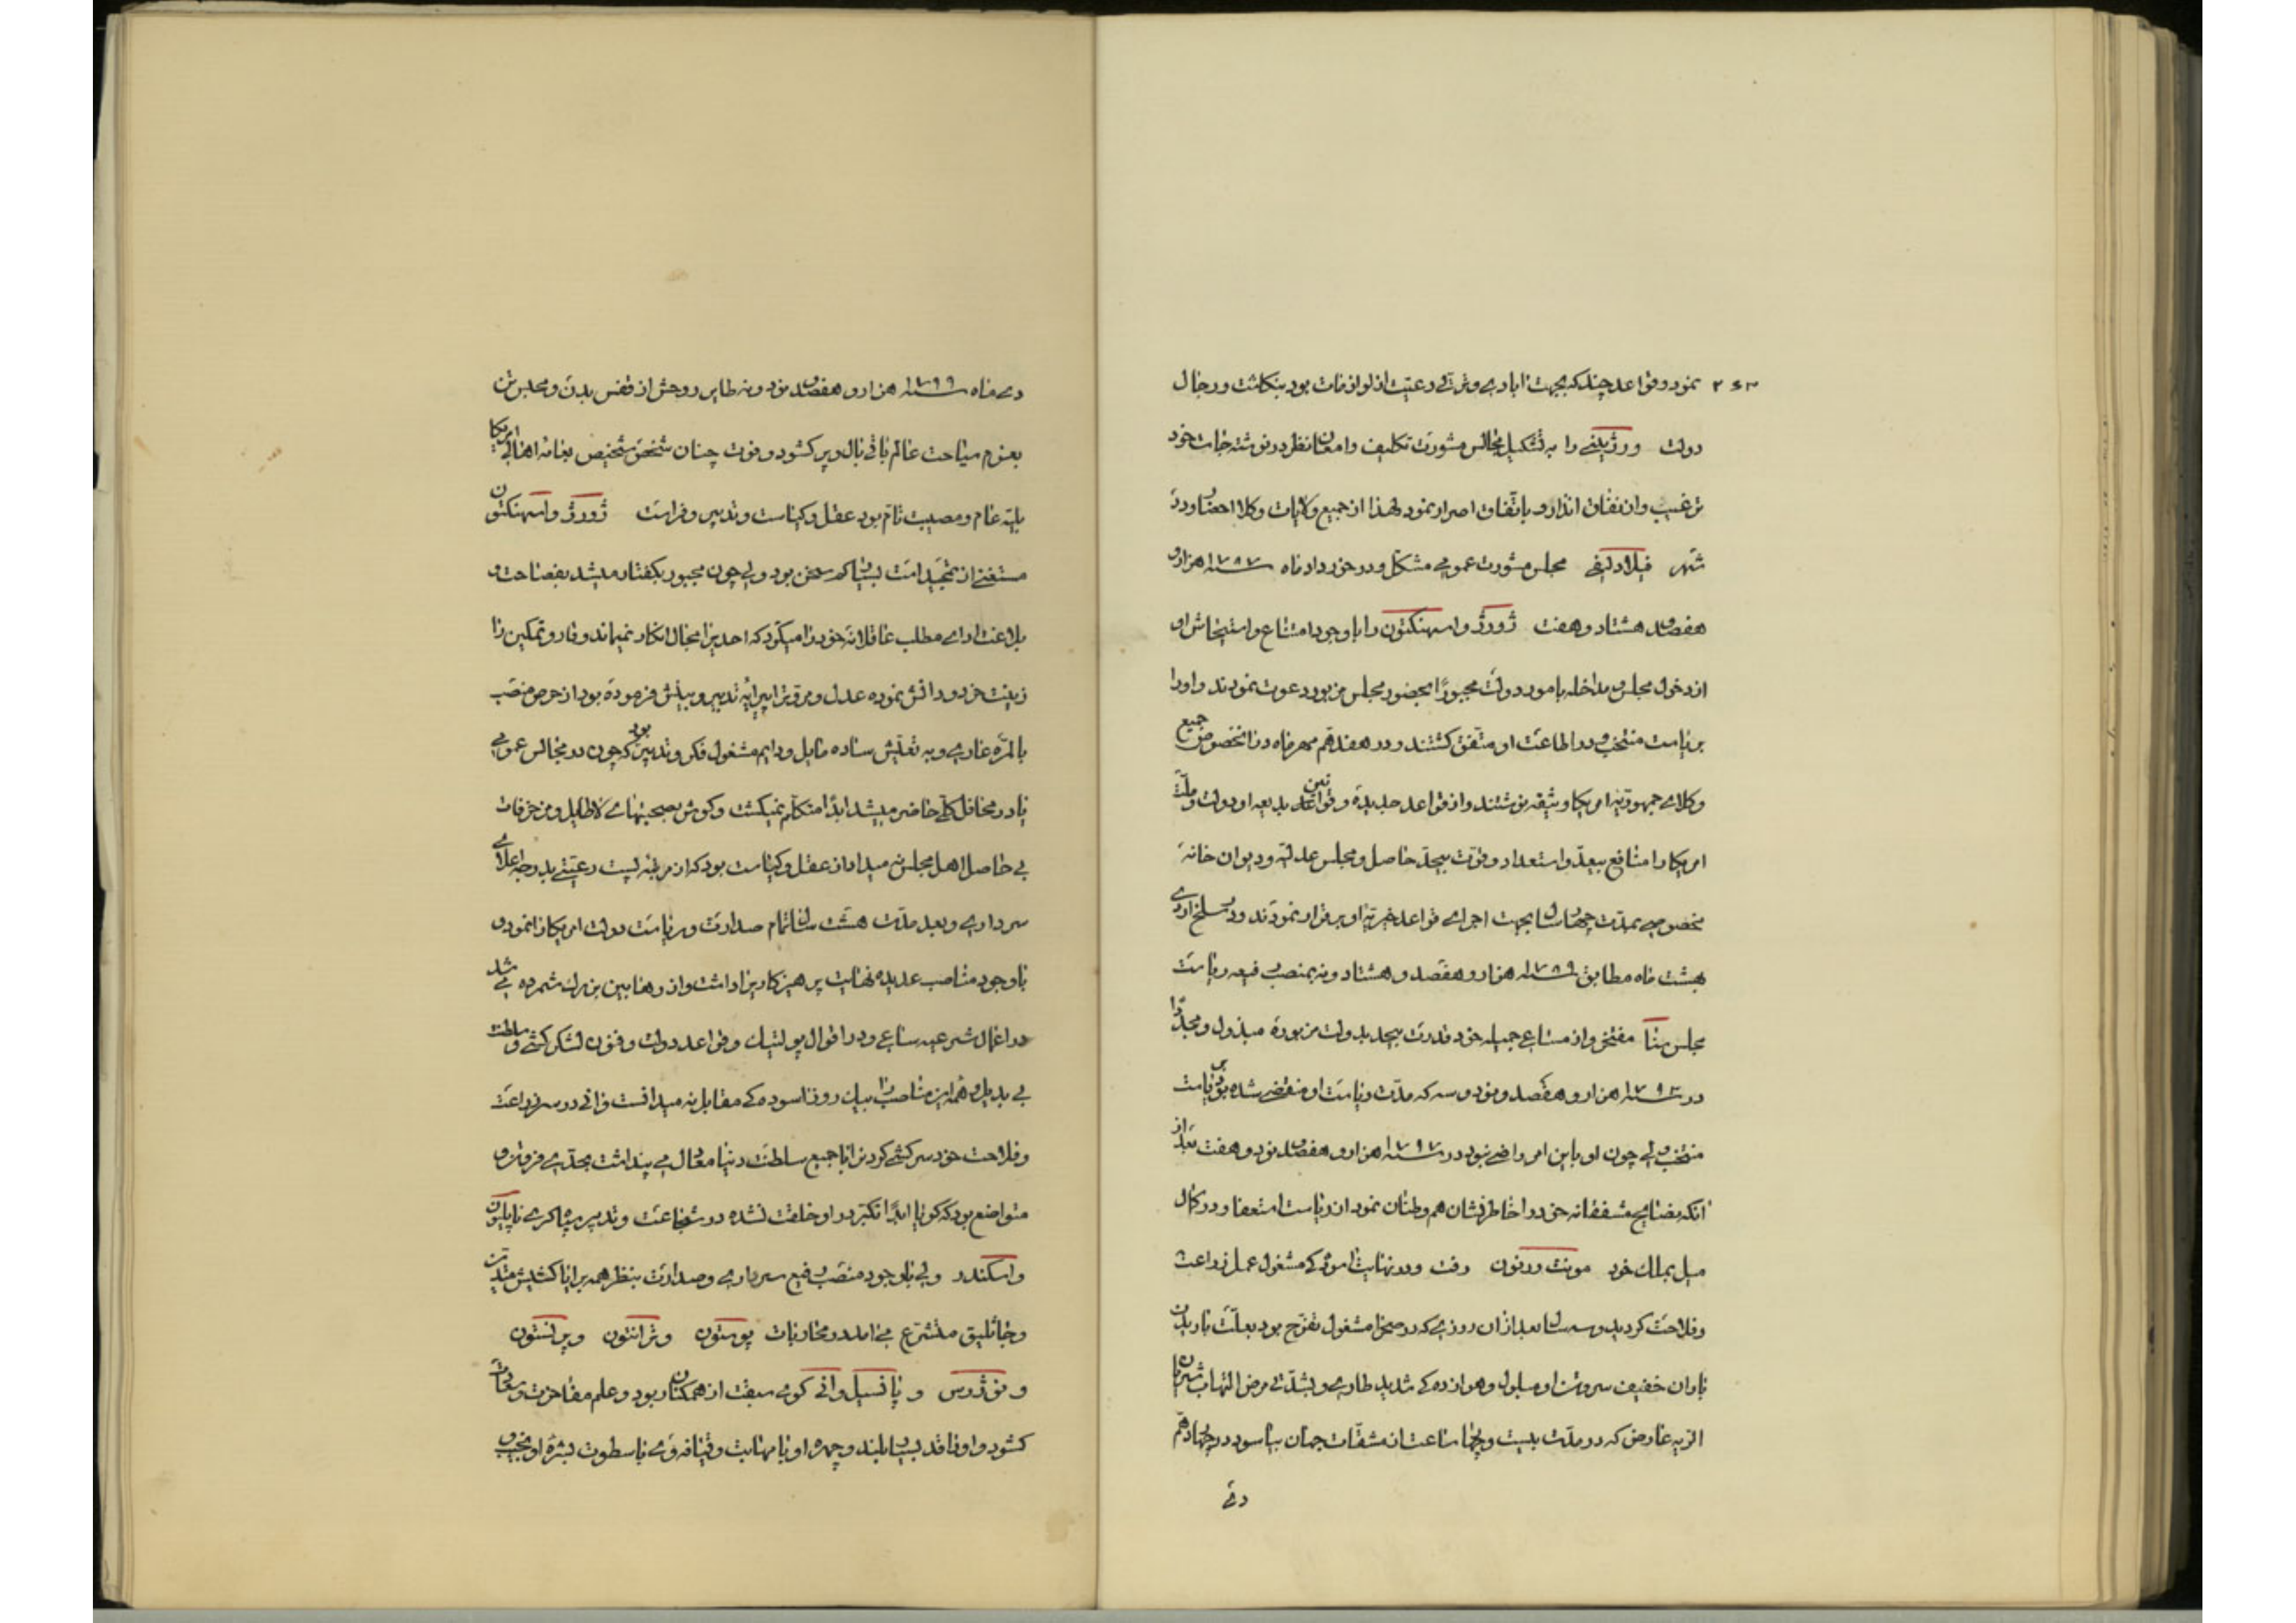 نمود و قواعد چند که بجهت آبادی و ترقی رعیت از لوازمات بود بنگاشت و رجال
دولت ورژینی را به تشکیل مجالس مشورت تکلیف و امعان نظر در نوشته جات خود
ترغیب و از نفاق انذار و باتفاق اصرار نمود لهذا از جمیع ولایات وکلا احضار و در
شهر فیلادلفی مجلس مشورت عمومی مشکل و در خرداد ماه سنه ۱۷۸۷ هزار و
هفصد هشتاد و هفت ژورژ واسهنکتون را با وجود امتناع و استیحاش او
از دخول مجلس و مداخله بامور دولت مجبوراً بحضور مجلس مزبور دعوت نمودند و او را
بریاست منتخب و در اطاعت او متفق گشتند و در هفدهم مهرماه در اینخصوص جمیع
وکلای جمهوریه امریکا وثیقه نوشتند و از قواعد جدیده و قوانین بدیعه او دولت و ملت
امریکا را منافع بیعد و استعداد و قوت بیحد حاصل و مجلس عدلیه و دیوان خانه
مخصوصی بمدت چهار سال بجهت اجرای قواعد خیریه او برقرار نمودند و در سلخ اردی
بهشت ماه مطابق سنه ۱۷۸۹ هزار و هفصد و هشتاد و نه بمنصب رفیعه ریاست
مجلس سنا مفتخر و از مساعی جمیله خود قدرت بیحد بدولت مزبوره مبذول و مجدداً
در سنه ۱۷۹۳ هزار و هفصد و نود و سه که مدت ریاست او منقضی شده بود بریاست
منتخب ولی چون او باین امر راضی نبود در سنه ۱۷۹۷ هزار و هفصد نود و هفت بعد از
آنکه نصایح مشفقانه خود را خاطرنشان هم وطنان نمود از ریاست استعفا و در کمال
میل بملک خود مونت ورنون رفت و در نهایت آسودگی مشغول عمل زراعت
و فلاحت گردید و سه سال بعد از آن روزی که در صحرا مشغول تفرج بود بعلت باریدن
باران خفیف سر و تن او مبلول و هوازدگی شدید طاری و بشدتی مرض التهاب شریان
الریه عارض که در مدت بیست و چهار ساعت از مشقات جهان بیاسود در چهاردهم
دی
دی ماه سنه ۱۷۹۹ هزار و هفصد نود و نه طایر روحش از قفس بدن و محبس تن
بعزم سیاحت عالم باقی بال و پر گشود و فوت چنان شخص شخیص بعامه اهالی امریکا
بلیه عام و مصیبت تام بود عقل و کیاست و تدبیر و فراست ژورژ واسهنکتون
مستغنی از تمجید است بسیار کم سخن بود ولی چون مجبور بگفتار میشد بفصاحت و
بلاغت ادای مطلب عاقلانه خود را میکرد که احدیرا مجال انکار نمیماند وقار و تمکین را
زینت خرد و دانش نموده عدل و مروترا پیرایه تدبیر و بینش فرموده بود از حرص منصب
بالمره عاری و به تعیش ساده مایل و دایم مشغول فکر و تدبیر بود که چون در مجالس عمومی
یا در محافل کلی حاضر میشد ابداً متکلم نمیگشت و گوش بصحبتهای لاطایل و مزخرفات
بی حاصل اهل مجلس نمیداد از عقل و کیاست بود که از مرتبه پست رعیتی بدرجه اعلای
سرداری و بعد مدت هشت سال تمام صدارت و ریاست دولت امریکا را نمود و
با وجود مناصب عدیده نهایت پرهیزکاریرا داشت و از رهابین بزرک شمرده می شد
در اعمال شرعیه ساعی و در اقوال پولتیک و قواعد دولت و فنون لشکر کشی و سلطنت
بی بدیل و همه این مناصب را بیک روز آسودگی مقابل نمیدانست و آنی در سر زراعت
و فلاحت خود سرکشی کردنرا با جمیع سلطنت دنیا معادل می پنداشت بحدی فروتن و
متواضع بود که گویا ابداً تکبر در او خلقت نشده در شجاعت و تدبیر سپاهگری ناپلیون
و اسکندر ولی با وجود منصب رفیع سرداری و صدارت بنظر همه برایا کشیش متدین
و جاثلیق متشرع می آمد در محاربات بوستون و ترانتون و پرنستون
و نوژرس و پانسیل وانی گوی سبقت از همگنان ربود و علم مفاخرت و سعادت
گشود و او را قد بسیار بلند و چهره او با مهابت و قیافه وی با سطوت بشره او نجیب و